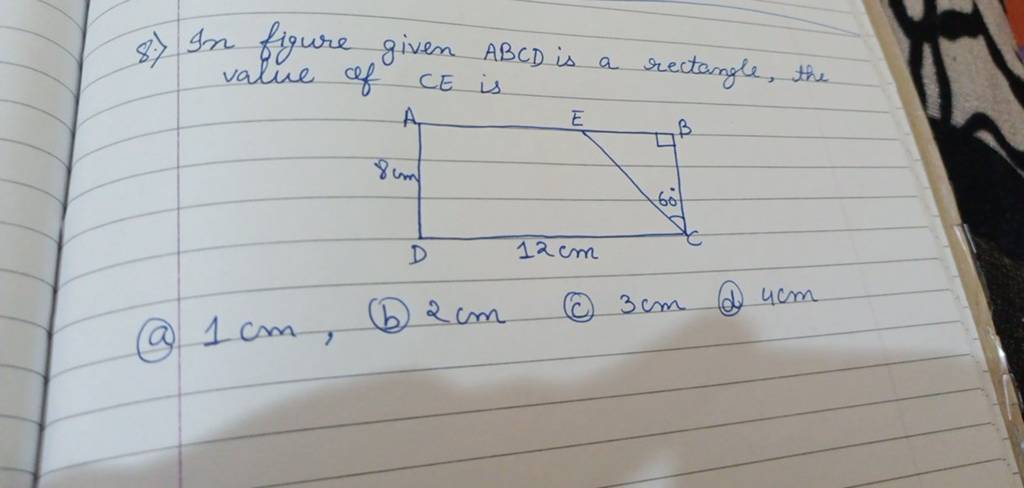 8.) In figure given ABCD is a rectangle, the
value of CE is
A E B
8cm
60°
D 12cm C
ⓐ 1cm, ⓑ 2cm ⓒ 3cm ⓓ 4cm